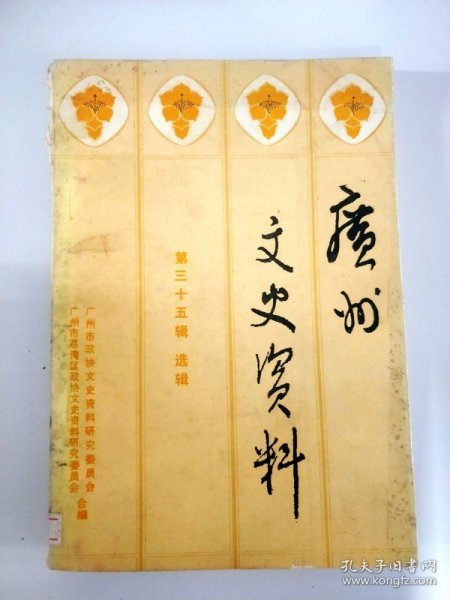 廣州
文史资料
第三十五辑 选辑
广州市政协文史资料研究委员会
广州市荔湾区政协文史资料研究委员会
合编
孔夫子旧书网
www.kongfz.com